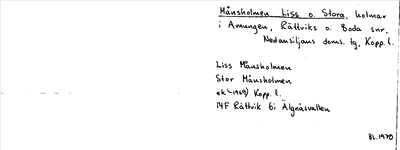 Månsholmen Liss o. Stora, holmar
i Amungen, Rättviks o. Boda snr,
Nedansiljans doms. tg, Kopp. l.
Liss Månsholmen
Stor Månsholmen
ek (1969) Kopp. l.
14F Rättvik 6i Älgnäsvallen
BL 1970